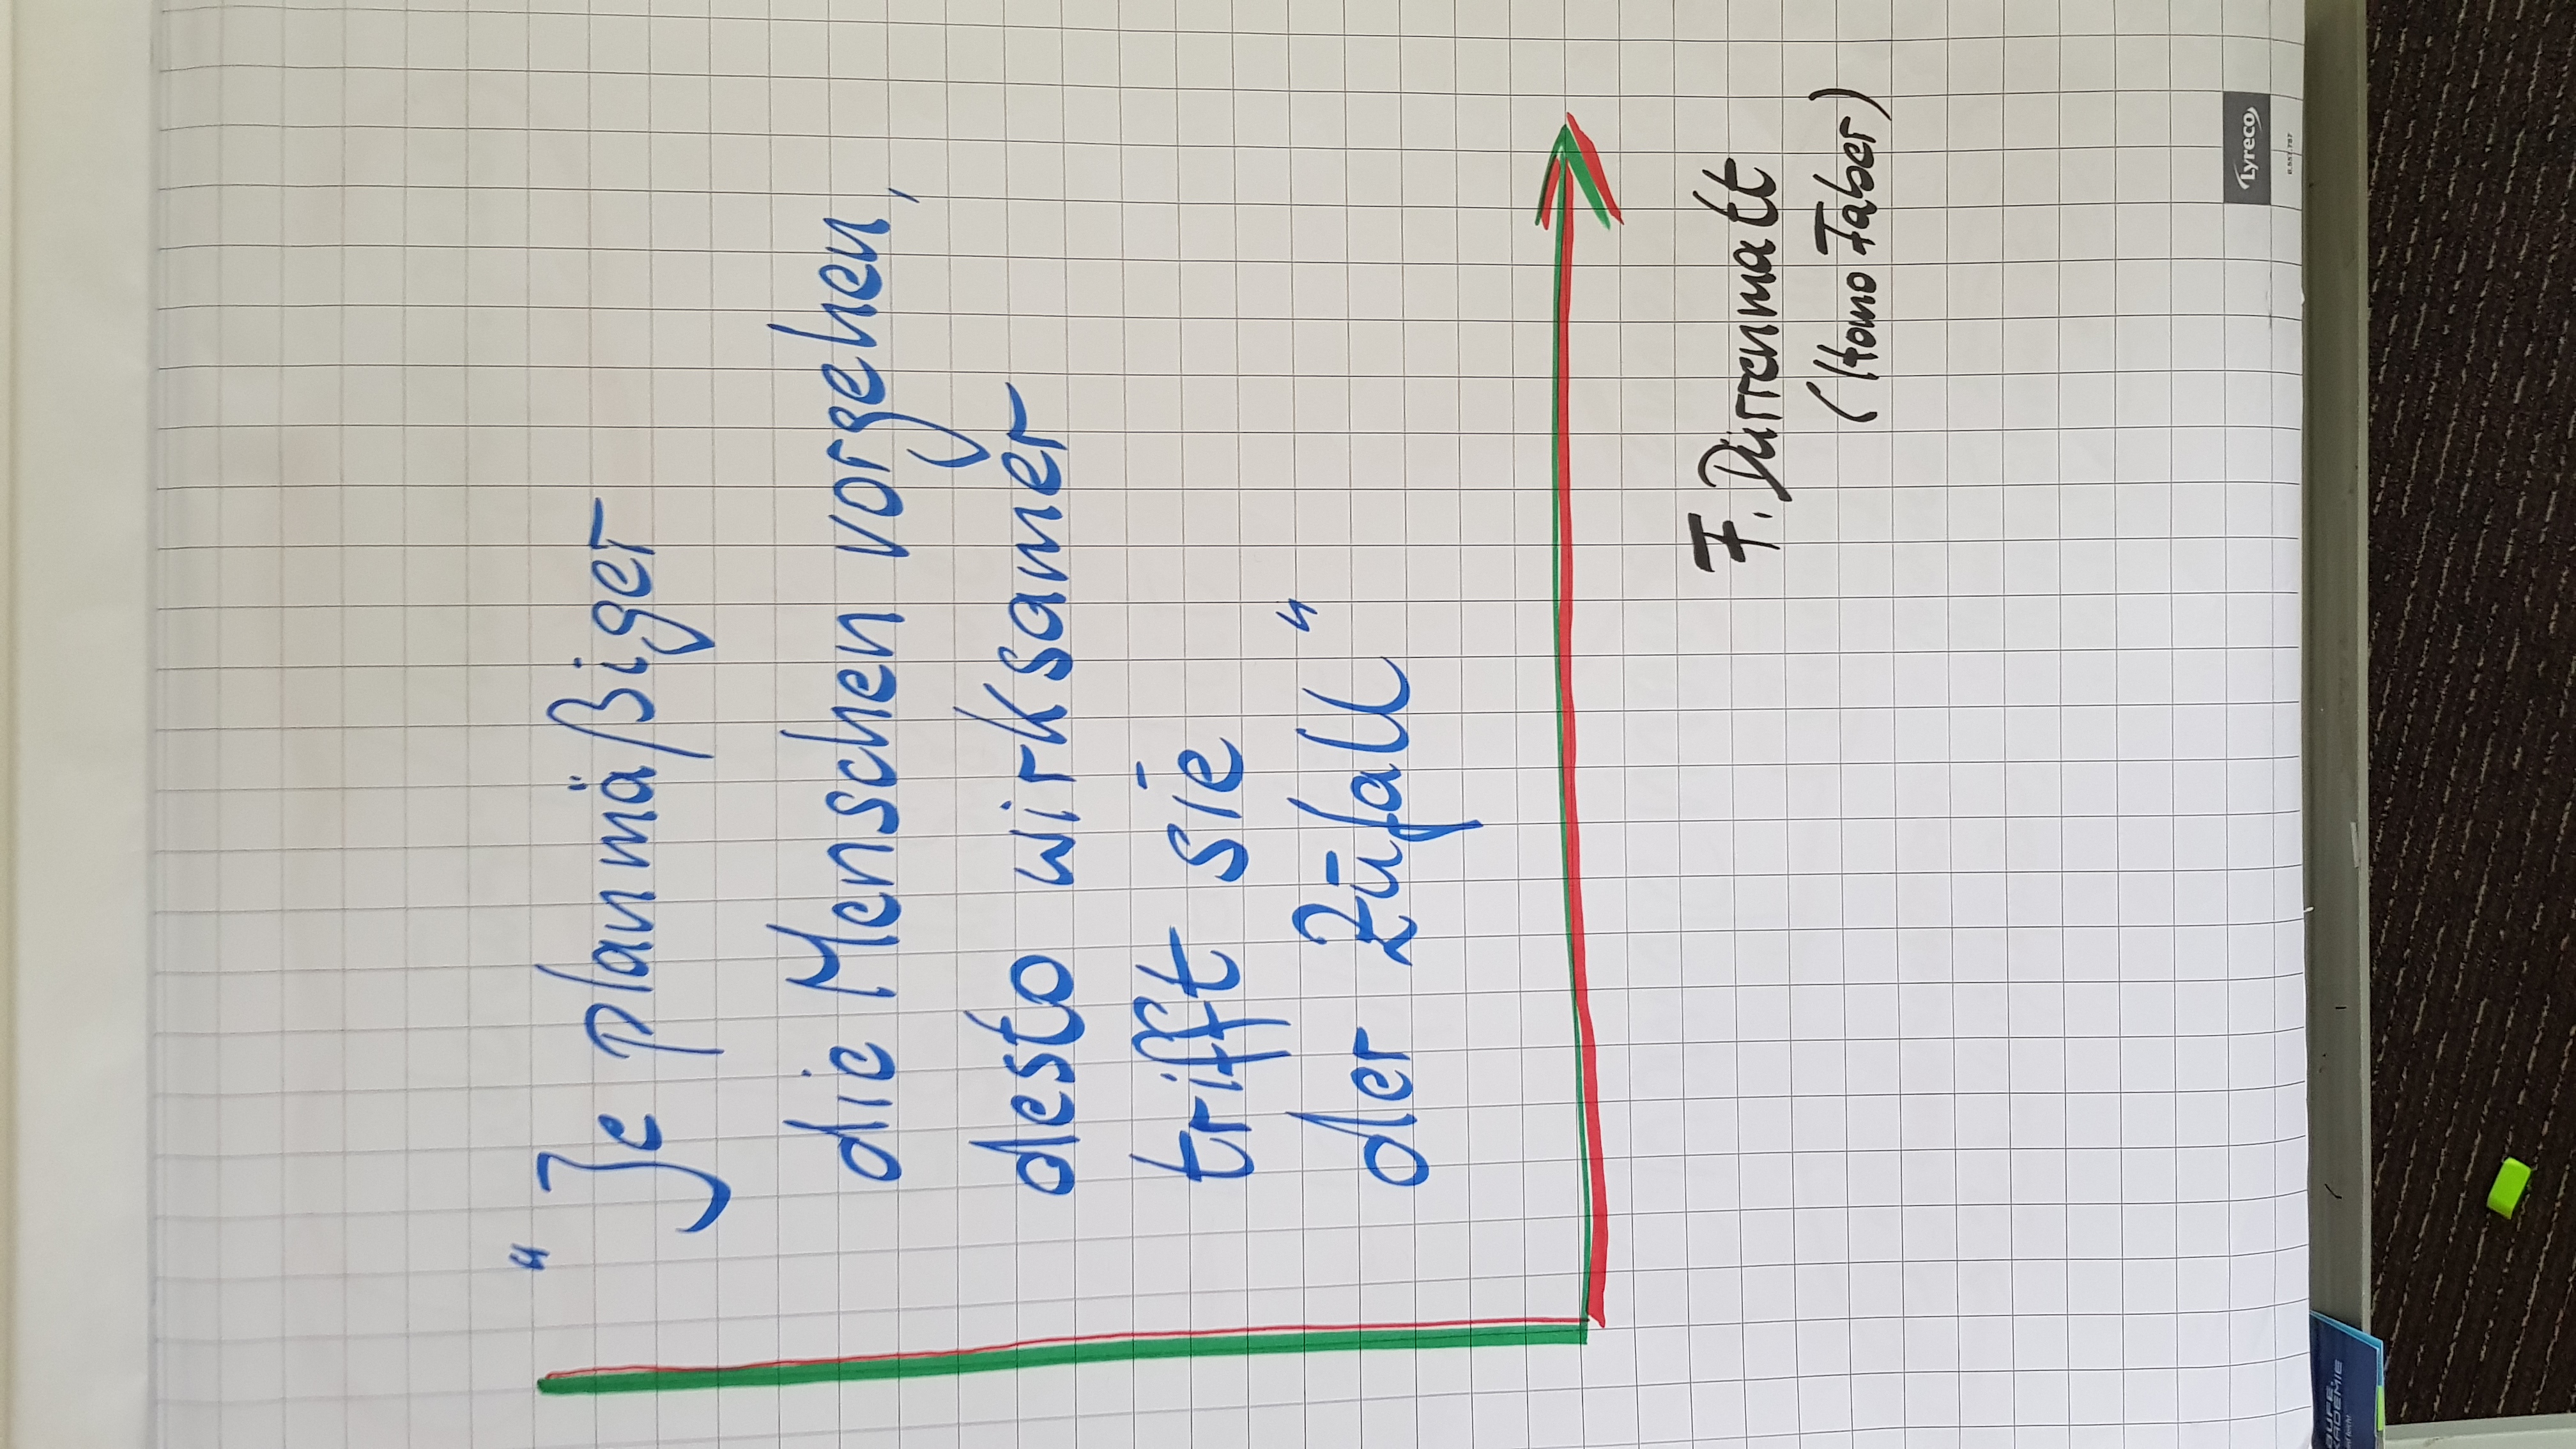 "Je planmäßiger
die Menschen vorgehen,
desto wirksamer
trifft sie
der Zufall"
F. Dürrenmatt
(Homo Faber)
Lyreco